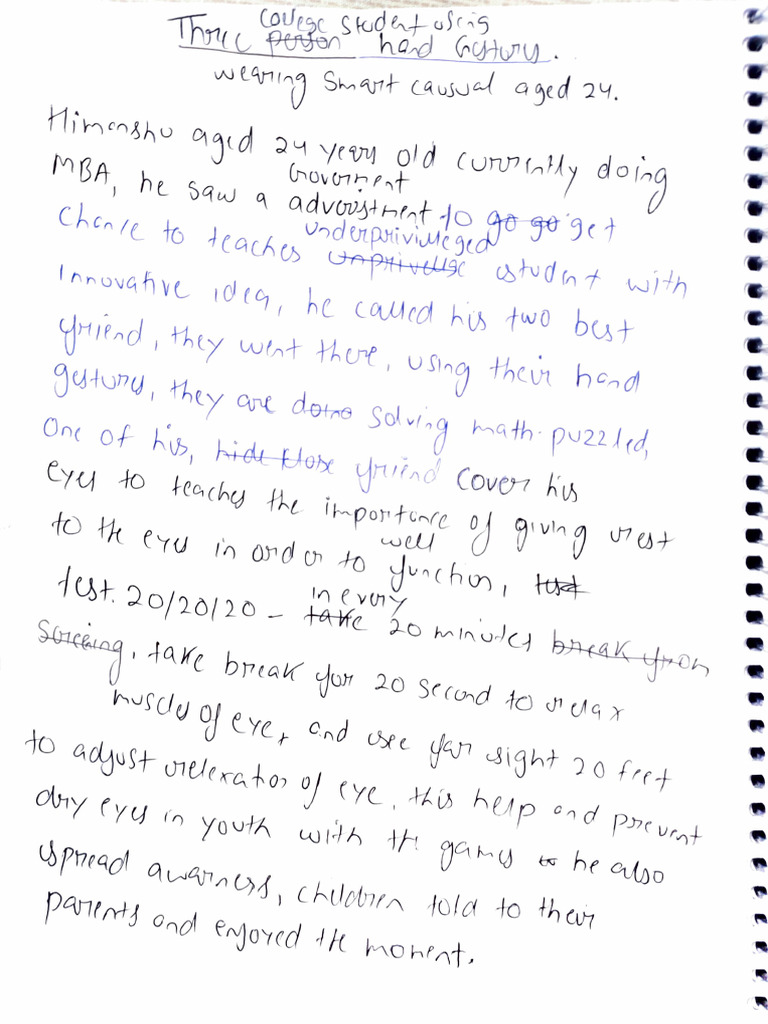 college student using
Three person hand Gesturs.
wearing smart causual aged 24.
Himanshu aged 24 years old currently doing
Goverment
MBA, he saw a adverstment to go go get
underprivilleged
chance to teaches unprivellge student with
innovative idea, he called his two best
friend, they went there, using their hand
gesturs, they are doino solving math puzzled,
One of his, friend cover his
eyes to teaches the importance of giving rest
well
to the eyes in order to function, test
test. 20/20/20 -
in every
take 20 minutes break from
, take break for 20 second to relax
muscles of eye, and see far sight 20 feet
to adjust relexation of eye, this help and prevent
dry eyes in youth with the games he also
spread awarness, children told to their
parents and enjoyed the moment.